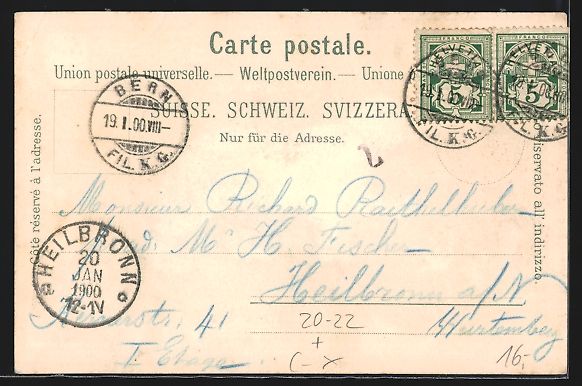 Carte postale.
Union postale universelle. — Weltpostverein. — Unione
SUISSE. SCHWEIZ. SVIZZERA
Nur für die Adresse.
Côté réservé à l'adresse.
riservato all' indirizzo.
FRANCO
HELVETIA
5
5
BERN
19. I. 00. VIII —
FIL. K. G.
FIL. K. G.
Monsieur Richard
M. H. Fischer
Heilbronn a/N
41
Wurtemberg
I Etage
HEILBRONN
20
JAN
1900
12-1V
20-22
+
C-X
16,-